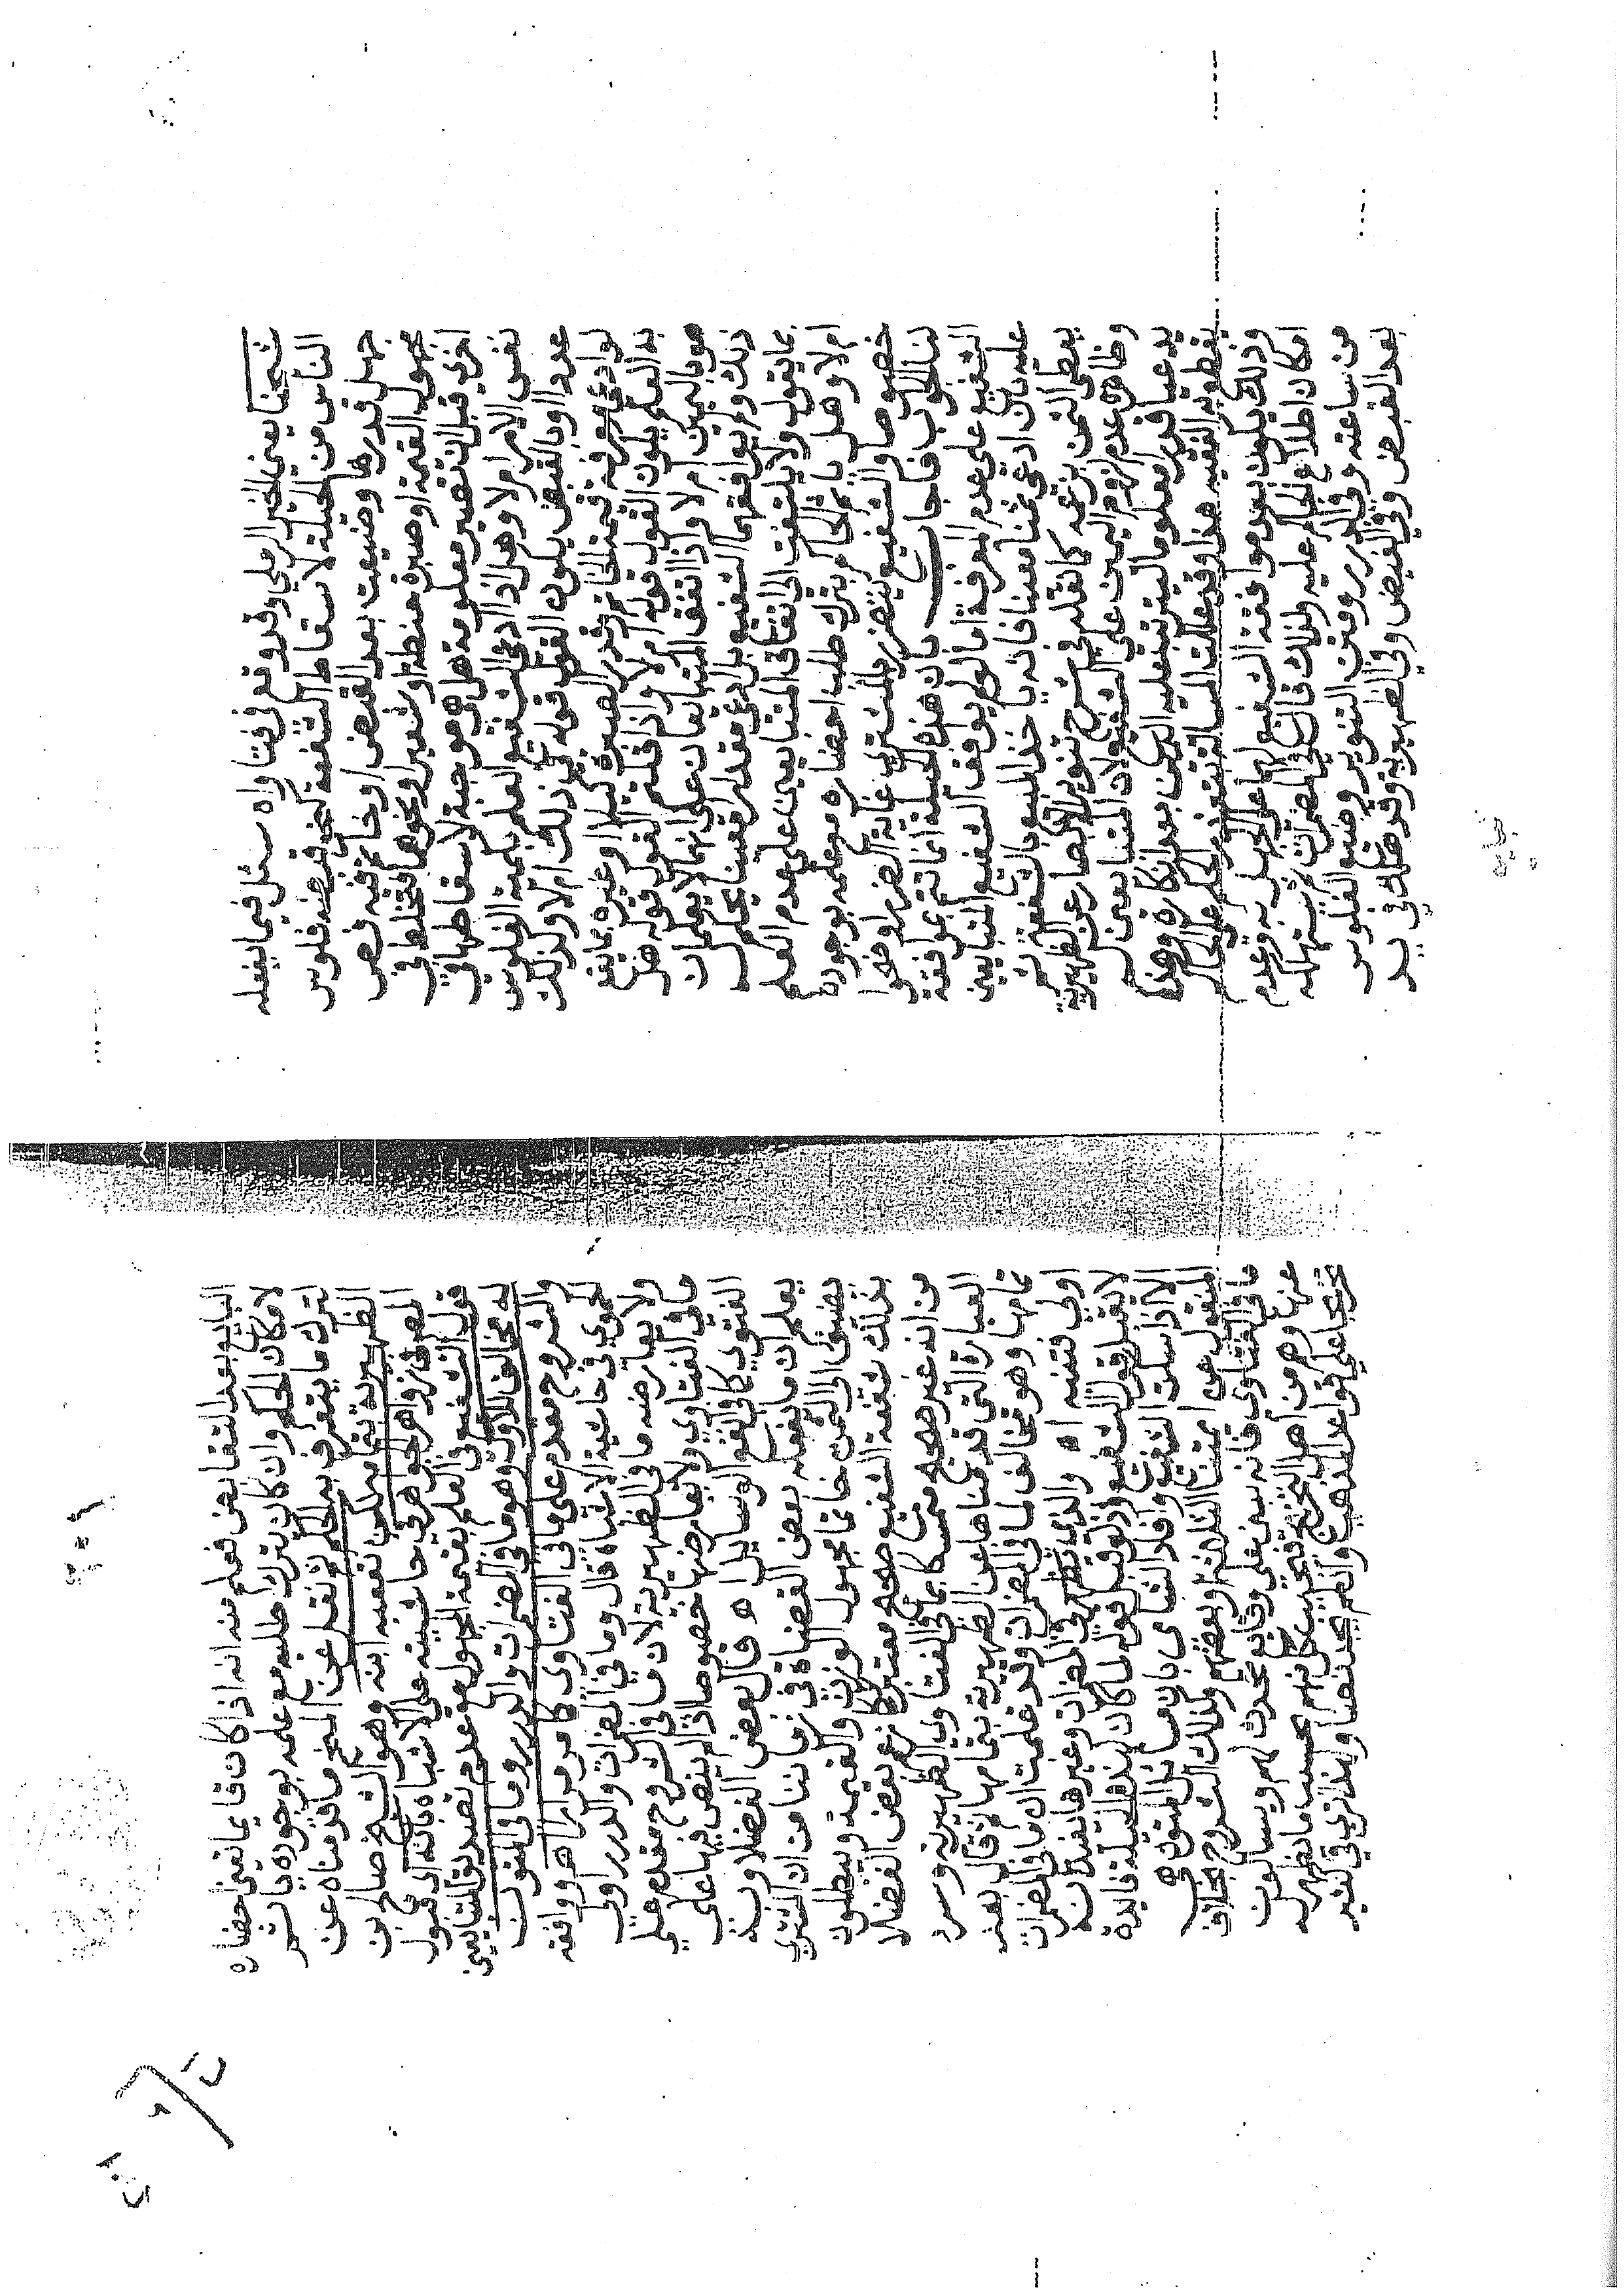 شيخنا يعني الخير الرملي وقد وقع في فتاواه سئل فيما يفعله
الناس من الحيلة لاسقاط الشفعة كجف قبضه فلوس
جهل قدرها وضيعت بعد القبض او خاتم فيه فص
مجهول القيمة او صبرة حنطة او شعير او نحوها فتخلط في
اخرى قبل ان تصير معلومة هل هي موجبة لاسقاطها في
نفس الامر ام لا وهل اذا ادعى الشفيع العلم بكمية الفلوس
عددا او بالقبض يكون القول قوله في ذلك ام لا وكذلك
لو ادعى معرفة قيمة الخاتم وقدر الصبرة كيلا او غيره بما يقع
به العلم يكون القول قوله ام لا واذا قلتم القول قوله هل
هو باليمين ام لا واذا اتفق المتبايعان على انهما لا يعلمان
ذلك ولم يوافقهما الشفيع بل ادعى مقدارا معينا يحكم له
بما يقول ولا يلتفت الى اتفاق المتبايعين على عدم العلم
ام لا وهل ياثم الحاكم بترك طلب احضاره مع علمه بوجوده
خصوصا والشفيع يتضرر والمشتري غاية الضرر اوضحوا
لنا الجواب فاجاب بان هذه الحيلة انما تتم بموافقة
الشفيع على عدم المعرفة اما لو لم يوافق الشفيع المتبايعين
عليه بان ادعى ثمنا معينا فانه ياخذ المبيع بالشفعة ثم
يعطي الثمن بزعمه كما نقله في شرح تنوير الابصار عن الظهيرية
وظاهره عدم لزوم اليمين على الشفيع لان المتبايعين لم
يدعيا قدرا معلوما ليترتب عليه اليمين بعد انكاره وهذا
يقطع به الفقيه هذا وقد علمت المسئلة بتعذر الحكم على الحاكم
وذلك يكون بعد موافقة الشفيع لهما على الجهل به وعدم
امكان اطلاع الحاكم عليه ولذلك قال في المضمرات ثم يستهلكه
من ساعته وفي الدرر ومتن التنوير وضيع الفلوس
بعد القبض وفي الفيض وفي الظهيرية وقد هلك في يد
البايع بعد التقابض فعلم منه انه اذا كان قايما تعين احضاره
لامكان الحكم وان كان ترك طلبه مع علمه بوجوده ياثم
لترك ما يتعرف به الحكم ثم نقل عن المنح ما قدمناه عن
الظهيرية بتمامه لكن تعقبه ابنه وهو الشيخ صالح بن
المصنف في زواهر الجواهر في حاشيته على الاشباه بانه ان قبول
قول الشفيع في العلم بقيمة المجهول مع عدم تصديق المتبايعين
له مخالف للاول وهو ما في المضمرات والدرر وما في المتون
والشروح مقدم على ما في الفتاوى كما مر مرارا اه ووافقه
الحموي في حاشية الاشباه قال وما في المضمرات والدرر اولى
ولا يعارضه ما في الظهيرية لان ما في الشروح مقدم على
ما في الفتاوى ولا يعارضها خصوصا اذا لم ينص فيها على
الفتوى كما في انفع الوسايل اه قال بعض الفضلاء وبه
يعلم ان ما يفعله بعض القضاة في زماننا من ان المشتري
يضيف الى الثمن خاتما مجهول الوزن والقيمة ويبطلون
بذلك شفعة الشفيع صحيح معتبر لا كما زعم بعض الفضلاء
من انه غير صحيح متمسكا بما في الفتاوى الظهيرية وسرد
العبارة التي قدمناها عن الظهيرية بتمامها ثم قال بعد
تمامها وهو مخالف لما في المضمرات وقد علمت ان ما في المضمرات
اولى فتنبه اه والذي يظهر في المضمرات وغيرها تفيد انه
لا يقبل قول الشفيع اذ لو قبل قوله لما كان لهذه الحيلة فايدة
الا اذا سكت الشفيع وافاد الشامي بان مسائل المتون هي
المنقول عن ائمتنا الثلاثة وبعضهم وكذلك الشروح بخلاف
ما في الفتاوى فانه يبني على وقايع تحدث لهم ويسالون
عنها وهم من اهل التخريج فيجيب كل منهم بحسب ما يظهر له
تخريجا على قواعد المذهب وان لم يجد نصا ولهذا ترى في كثير